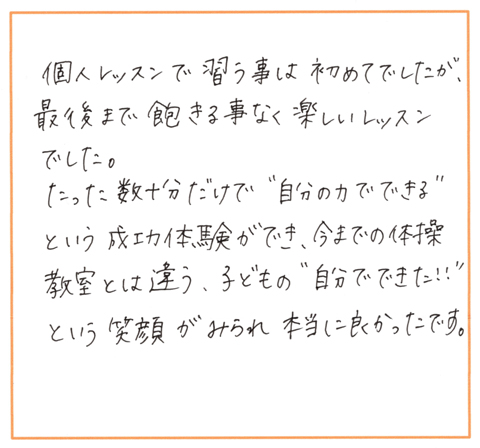 個人レッスンで習う事は初めてでしたが、
最後まで飽きる事なく楽しいレッスン
でした。
たった数十分だけで"自分の力でできる"
という成功体験ができ、今までの体操
教室とは違う、子どもの"自分でできた!!"
という笑顔がみられ本当に良かったです。